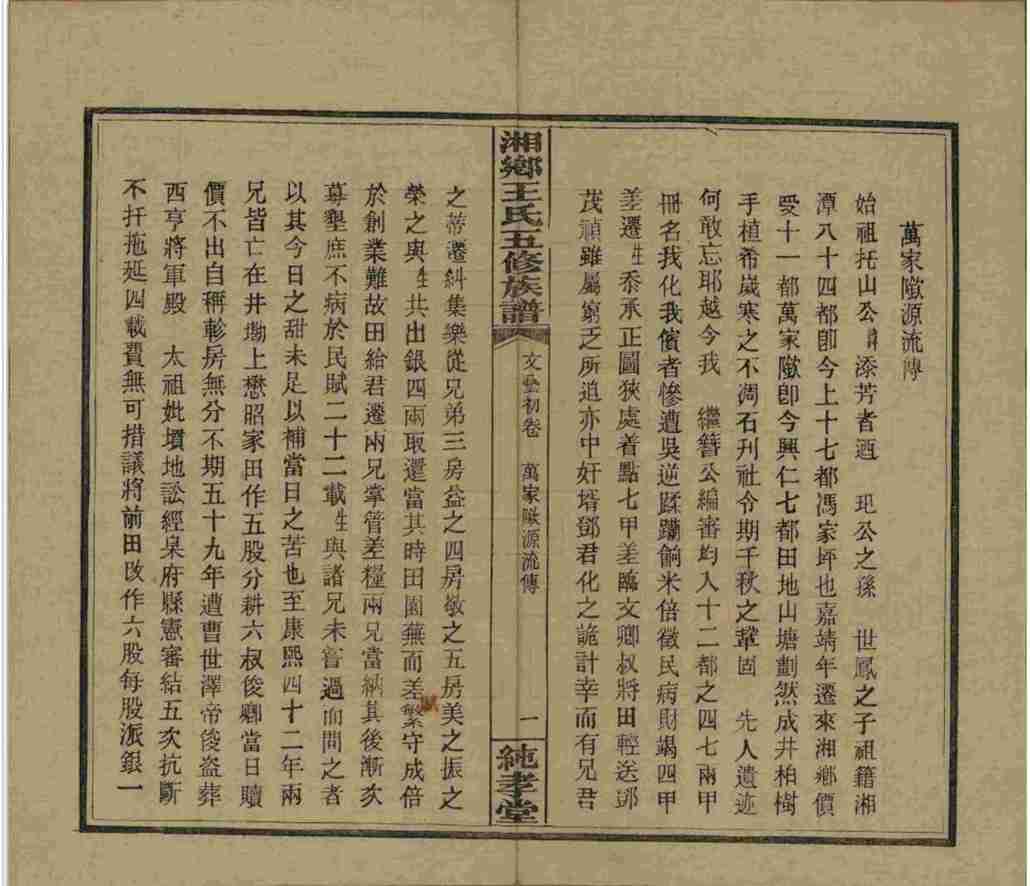 萬家歘源流傳
始祖托山公諱添芳者迺　玘公之孫　世鳳之子祖籍湘
潭八十四都卽今上十七都馮家坪也嘉靖年遷來湘鄉價
受十一都萬家歘卽今興仁七都田地山塘劃然成井柏樹
手植希歲寒之不凋石刊社令期千秋之鞏固　先人遺迹
何敢忘耶越今我　繼簪公編審均入十二都之四七兩甲
冊名我化我儐者慘遭吳逆蹂躪餉米倍徵民病財竭四甲
差遷生忝承正圖狹處着點七甲差臨文卿叔將田輕送鄧
茂禎雖屬窮乏所追亦中奸壻鄧君化之詭計幸而有兄君
湘鄉王氏五修族譜
文藝初卷　萬家歘源流傳
一
純孝堂
之蒂遷糾集樂從兄弟三房益之四房敬之五房美之振之
榮之與生共出銀四兩取還當其時田園蕪而差繁守成倍
於創業難故田給君遷兩兄掌管差糧兩兄當納其後漸次
募墾庶不病於民賦二十二載生與諸兄未嘗過而問之者
以其今日之甜未足以補當日之苦也至康熙四十二年兩
兄皆亡在井塘上懋昭家田作五股分耕六叔俊卿當日贖
價不出自稱軫房無分不期五十九年遭曹世澤帝俊盜葬
西亨將軍殿　太祖妣墳地訟經臬府縣憲審結五次抗斷
不扦拖延四載費無可措議將前田改作六股每股派銀一